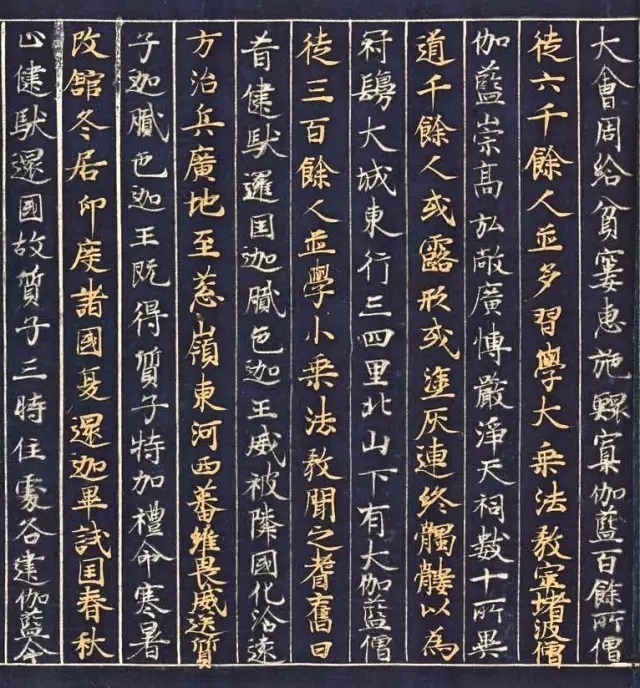 大會周給貧窶惠施鰥寡伽藍百餘所僧
徒六千餘人並多習學大乘法教窣堵波僧
伽藍崇高弘敞廣博嚴淨天祠數十所異
道千餘人或露形或塗灰連終髑髏以為
冠鬘大城東行三四里北山下有大伽藍僧
徒三百餘人並學小乘法教聞之耆舊曰
昔健馱邏囯迦膩色迦王威被隣國化洽遠
方治兵廣地至葱嶺東河西蕃維畏威送質
子迦膩色迦王既得質子特加禮命寒暑
改館冬居印度諸國夏還迦畢試囯春秋
止健馱邏國故質子三時住處各建伽藍今